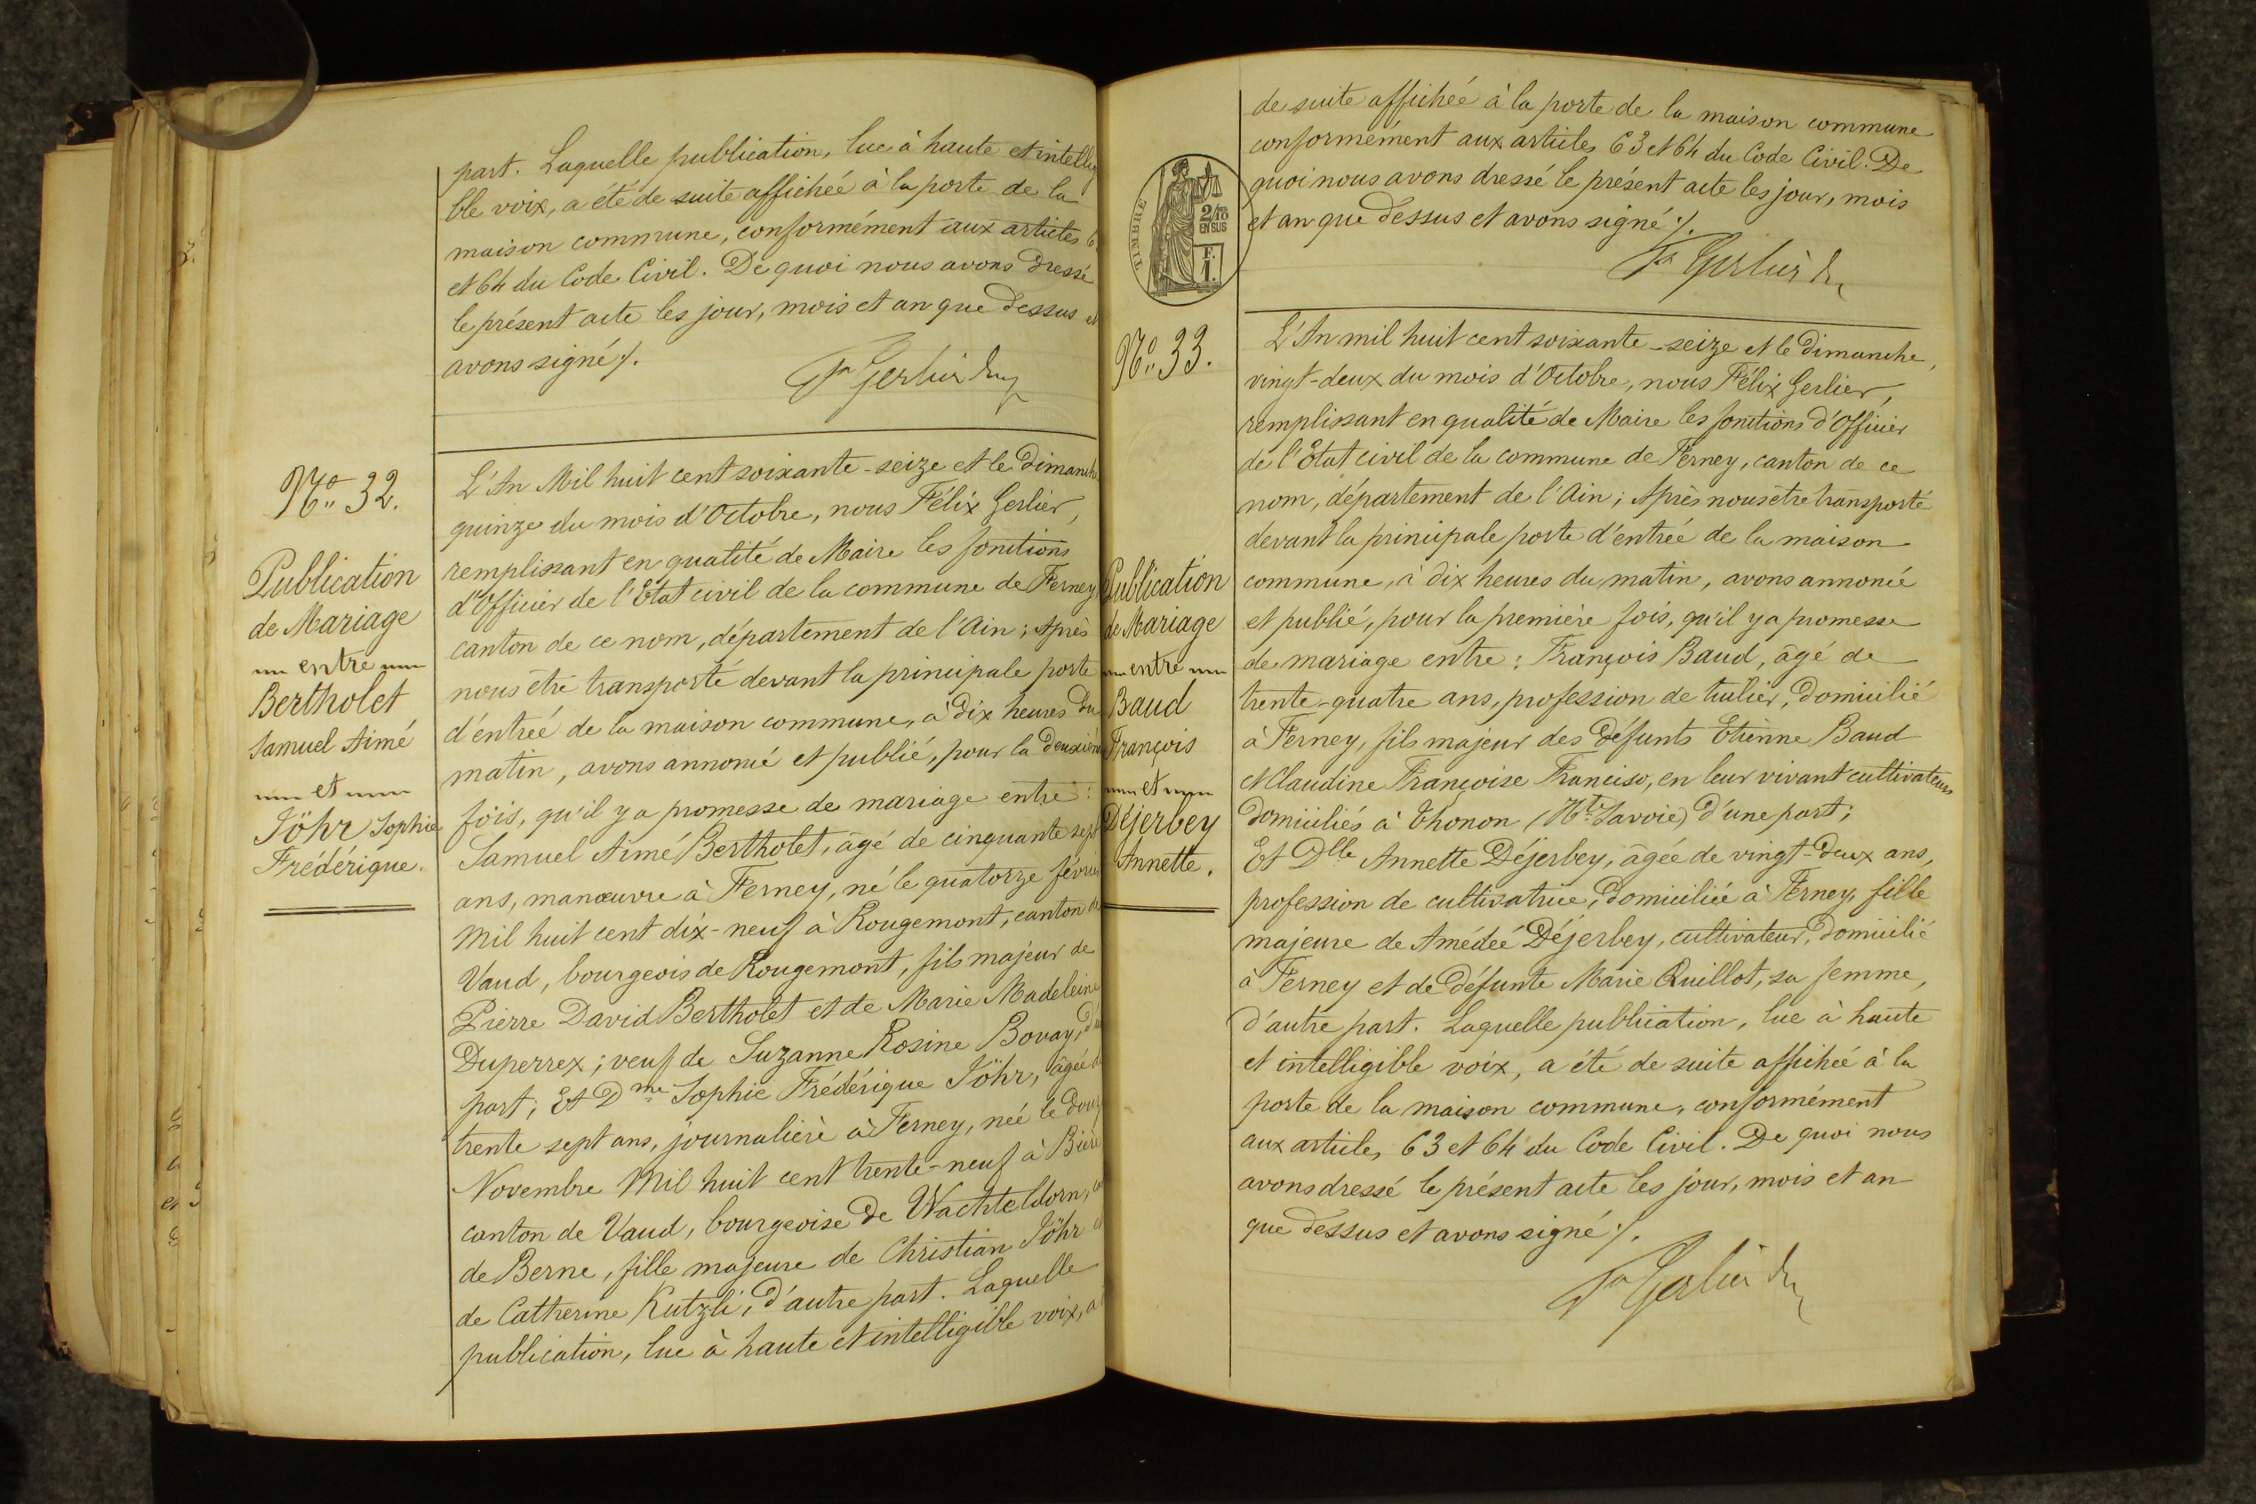 part. Laquelle publication, lue à haute et intellig
ble voix, a été de suite affichée à la porte de la
maison commune, conformément aux articles 6
et 64 du Code Civil. De quoi nous avons dressé
le présent acte les jour, mois et an que dessus et
avons signé ./.
No. 32.
Publication
de Mariage
entre
Bertholet
Samuel Aimé
et
Jöhr Sophie
Frédérique.
L'An Mil huit cent soixante-seize et le Dimanche
quinze du mois d'Octobre, nous Félix Gerlier,
remplissant en qualité de Maire les fonctions
d'Officier de l'Etat civil de la commune de Ferney
canton de ce nom, département de l'Ain; Après
nous être transporté devant la principale porte
d'entrée de la maison commune, à dix heures du
matin, avons annoncé et publié, pour la deuxième
fois, qu'il y a promesse de mariage entre:
Samuel Aimé Bertholet, âgé de cinquante sept
ans, manœuvre à Ferney, né le quatorze févrie
Mil huit cent dix-neuf à Rougemont, canton de
Vaud, bourgeois de Rougemont, fils majeur de
Pierre David Bertholet et de Marie Madeleine
Duperrex; veuf de Suzanne Rosine Bovay, d'u
part; Et Dme Sophie Frédérique Jöhr, âgée d
trente sept ans, journalière à Ferney, née le douz
Novembre Mil huit cent trente-neuf à Bière
canton de Vaud, bourgeoise de Wachteldorn, ca
de Berne, fille majeure de Christian Jöhr et
de Catherine Kutzli, d'autre part. Laquelle
publication, lue à haute et intelligible voix, a
TIMBRE
2/10 EN SUS
F. 1.
de suite affichée à la porte de la maison commune
conformément aux articles 63 et 64 du Code Civil. De
quoi nous avons dressé le présent acte les jour, mois
et an que dessus et avons signé ./.
No. 33.
Publication
de Mariage
entre
Baud
François
et
Déjerbey
Annette.
L'An mil huit cent soixante-seize et le Dimanche,
vingt-deux du mois d'Octobre, nous Félix Gerlier,
remplissant en qualité de Maire les fonctions d'Officier
de l'Etat civil de la commune de Ferney, canton de ce
nom, département de l'Ain; Après nous être transporté
devant la principale porte d'entrée de la maison
commune, à dix heures du matin, avons annoncé
et publié, pour la première fois, qu'il y a promesse
de mariage entre: François Baud, âgé de
trente-quatre ans, profession de tuilier, domicilié
à Ferney, fils majeur des défunts Etienne Baud
et Claudine Françoise Franciso, en leur vivant cultivateurs
domiciliés à Thonon (Hte Savoie) d'une part;
Et Dlle Annette Déjerbey, âgée de vingt-deux ans,
profession de cultivatrice, domiciliée à Ferney, fille
majeure de Amédée Déjerbey, cultivateur, domicilié
à Ferney et de défunte Marie Quillot, sa femme,
d'autre part. Laquelle publication, lue à haute
et intelligible voix, a été de suite affichée à la
porte de la maison commune, conformément
aux articles 63 et 64 du Code Civil. De quoi nous
avons dressé le présent acte les jour, mois et an
que dessus et avons signé ./.